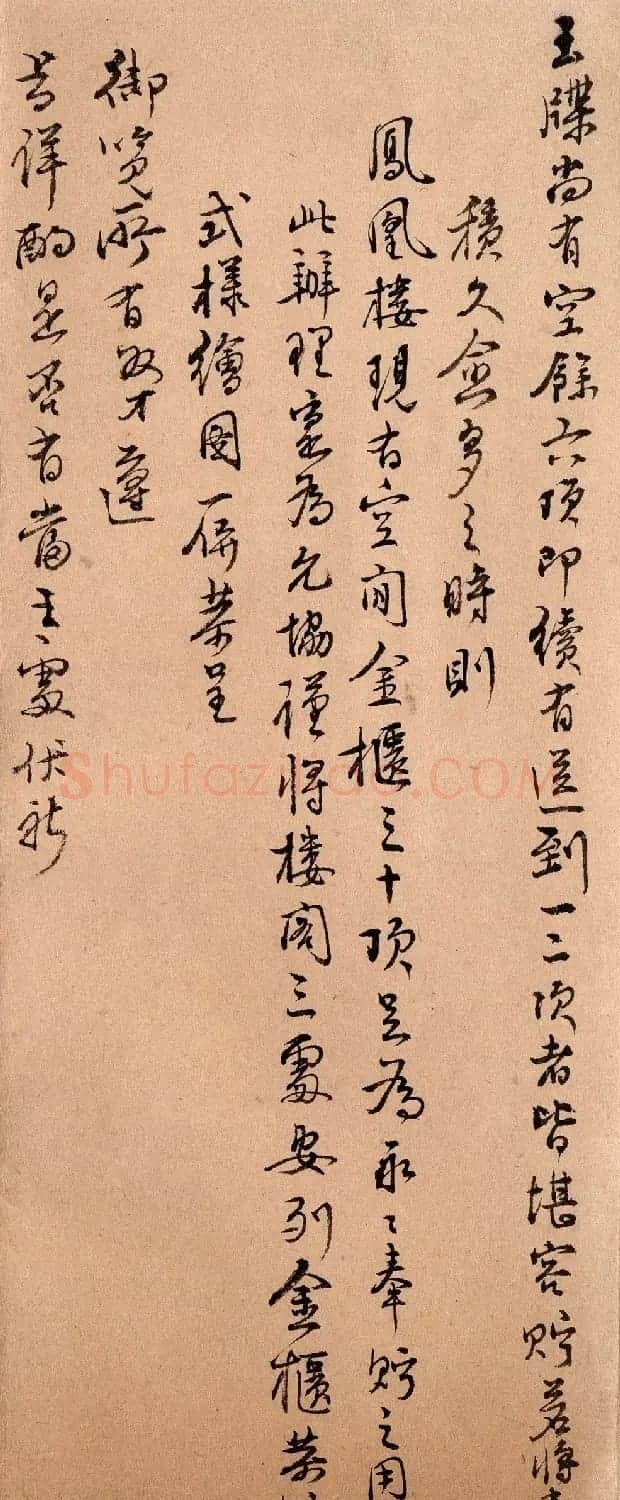 玉牒尚有空餘六頂即續有送到一二次者皆堪容貯若將來
積久愈多之時則
鳳凰樓現有空閒金櫃三十頂足為永〻奉貯之用
此辦理寔為允協謹將樓閣三處安列金櫃恭
式樣繪圖一併恭呈
御覽所有奴才遵
旨詳酌是否有當之處伏祈
Shufaziliao.COM